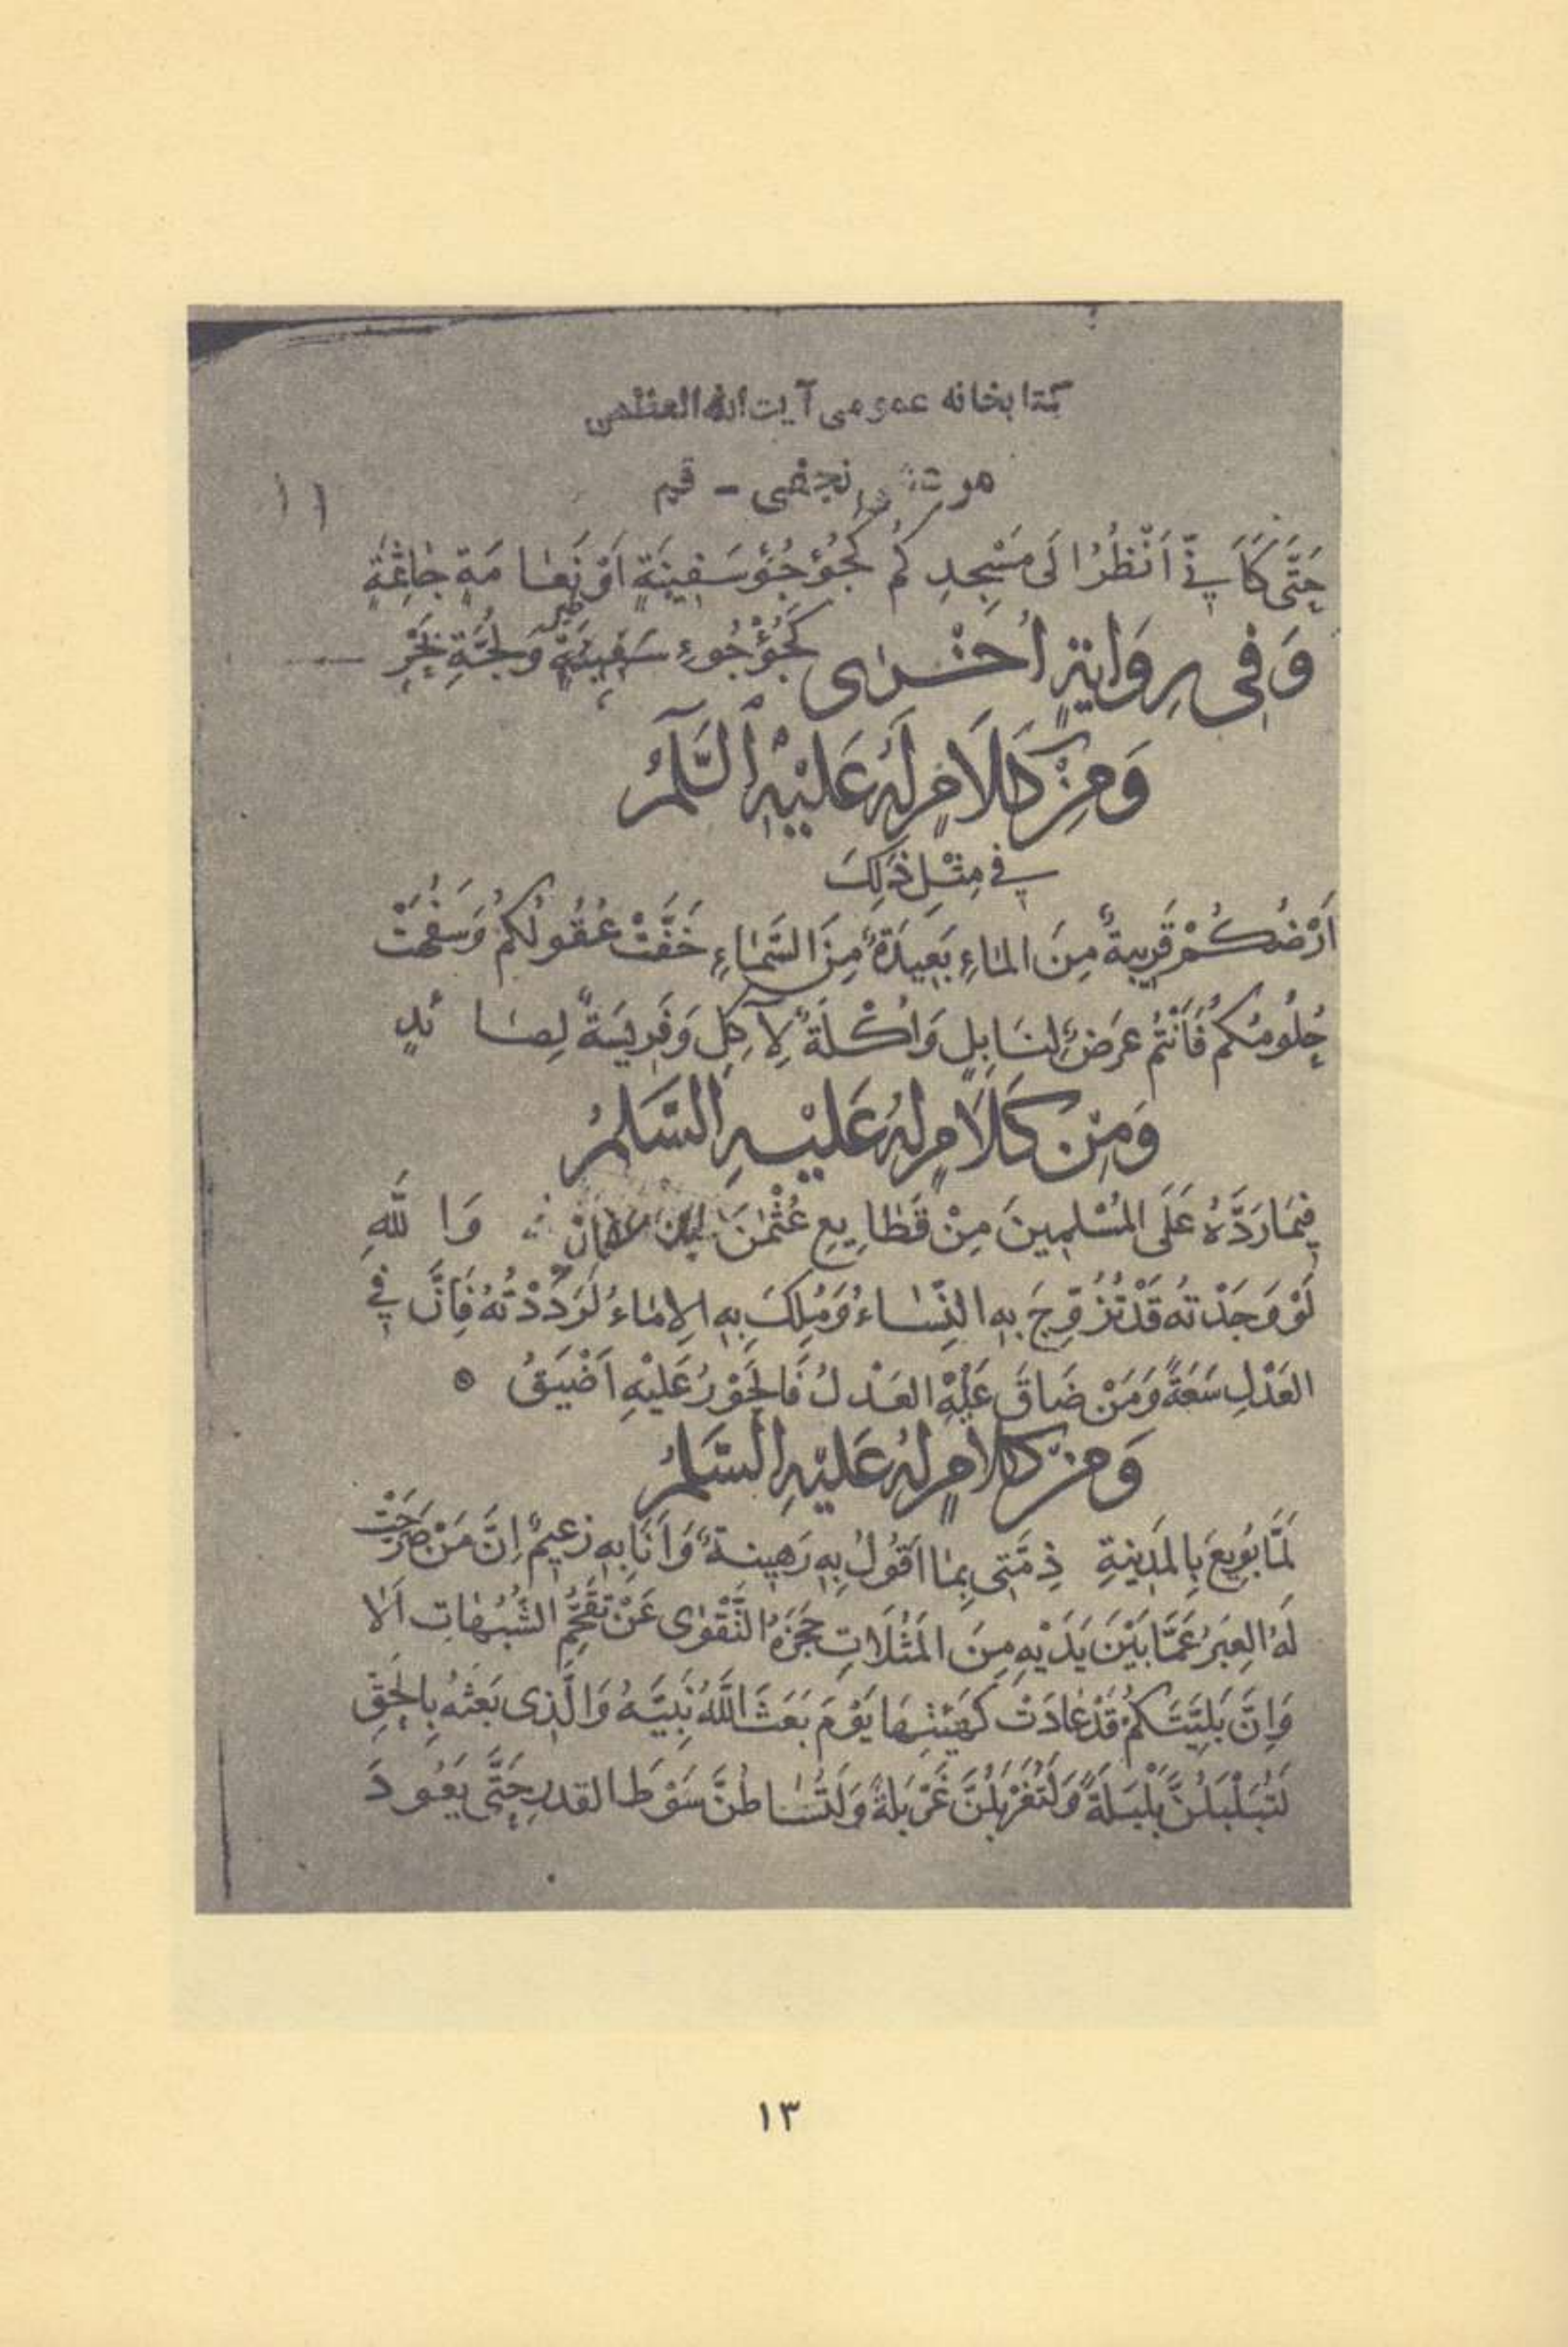 كتابخانه عمومى آيت الله العظمى
مرعشى نجفى - قم
١١
حَتَّى كَاَنِّي اَنْظُرُ اِلَى مَسْجِدِكُم كَجُؤْجُؤِ سَفِينَةٍ اَوْ نَعَامَةٍ جَاثِمَةٍ
وَفِي رِوَايَةٍ اُخْرَى كَجُؤْجُوءِ طَيْرٍ فِي لُجَّةِ بَحْرٍ
وَمِنْ كَلَامٍ لَهُ عَلَيْهِ السَّلَمُ
فِي مِثْلِ ذَلِكَ
اَرْضُكُمْ قَرِيبَةٌ مِنَ المَاءِ بَعِيدَةٌ مِنَ السَّمَاءِ خَفَّتْ عُقُولُكُمْ وَسَفِهَتْ
حُلُومُكُمْ فَاَنْتُمْ غَرَضٌ لِنَابِلٍ وَاُكْلَةٌ لِآكِلٍ وَفَرِيسَةٌ لِصَائدٍ
وَمِنْ كَلَامٍ لَهُ عَلَيْهِ السَّلَمُ
فِيمَا رَدَّهُ عَلَى المُسْلِمِينَ مِنْ قَطَايِعِ عُثْمَنَ وَاللَّهِ
لَوْ وَجَدْتُهُ قَدْ تُزُوِّجَ بِهِ النِّسَاءُ وَمُلِكَ بِهِ الاِمَاءُ لَرَدَدْتُهُ فَاِنَّ فِي
العَدْلِ سَعَةً وَمَنْ ضَاقَ عَلَيْهِ العَدْلُ فَالجَوْرُ عَلَيْهِ اَضْيَقُ
وَمِنْ كَلَامٍ لَهُ عَلَيْهِ السَّلَمُ
لَمَّا بُويِعَ بِالمَدِينَةِ ذِمَّتِى بِمَا اَقُولُ بِهِ رَهِينَةٌ وَاَنَا بِهِ زَعِيمٌ اِنَّ مَنْ صَرَّحَتْ
لَهُ العِبَرُ عَمَّا بَيْنَ يَدَيْهِ مِنَ المَثُلَاتِ حَجَزَهُ التَّقْوَى عَنْ تَقَحُّمِ الشُّبُهَاتِ اَلَا
وَاِنَّ بَلِيَّتَكُمْ قَدْ عَادَتْ كَهَيْئَتِهَا يَوْمَ بَعَثَ اللَّهُ نَبِيَّهُ وَالَّذِى بَعَثَهُ بِالحَقِّ
لَتُبَلْبَلُنَّ بَلْبَلَةً وَلَتُغَرْبَلُنَّ غَرْبَلَةً وَلَتُسَاطُنَّ سَوْطَ القدرِ حَتَّى يَعُودَ
١٣